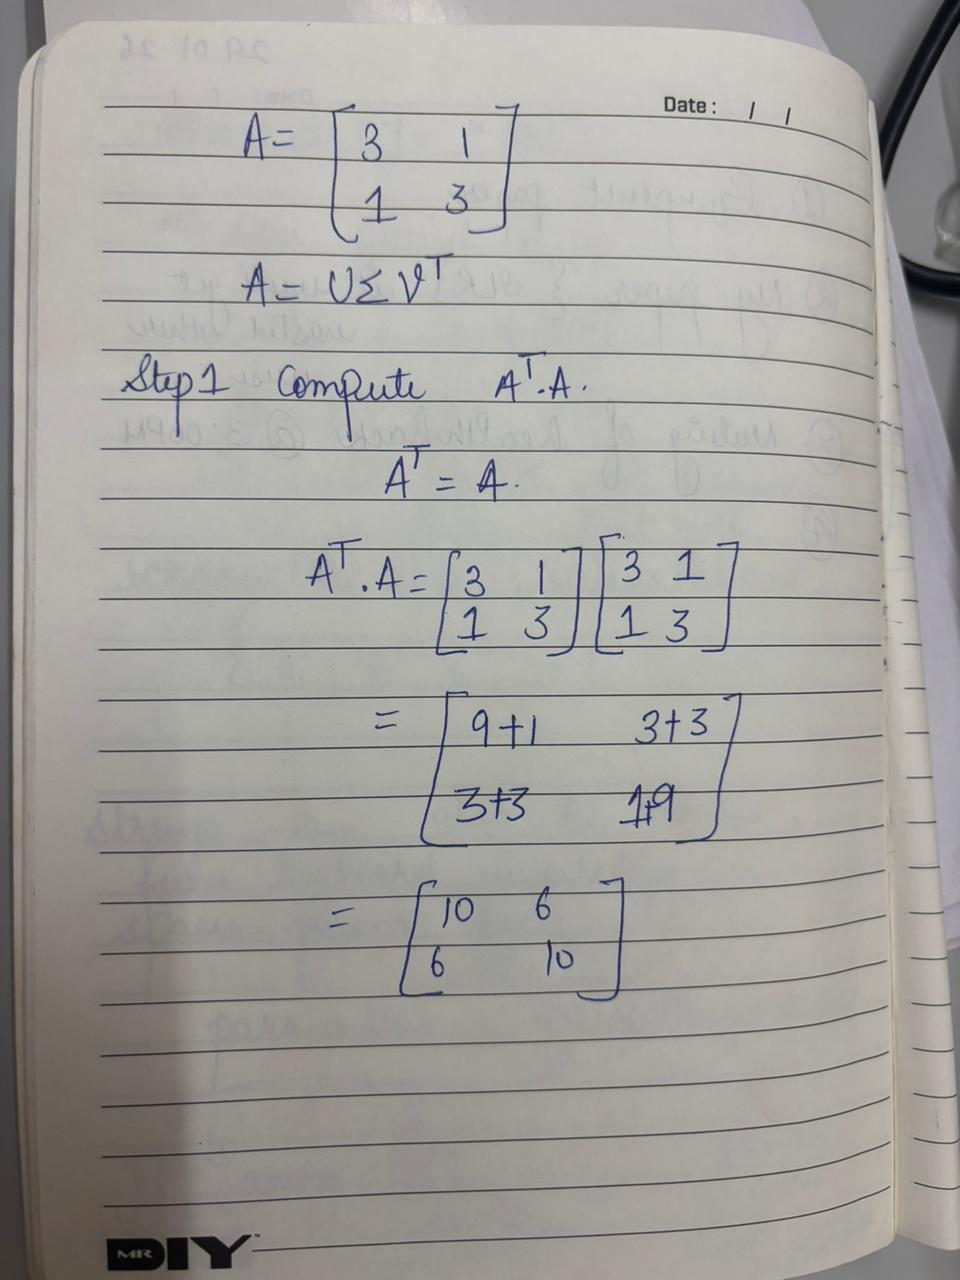 Date: / /
A = [ 3 1
1 3 ]
A = UΣV^T
Step 1 Compute A^T.A.
A^T = A.
A^T.A = [ 3 1 ] [ 3 1 ]
[ 1 3 ] [ 1 3 ]
= [ 9+1 3+3
3+3 1+9 ]
= [ 10 6
6 10 ]
MR DIY